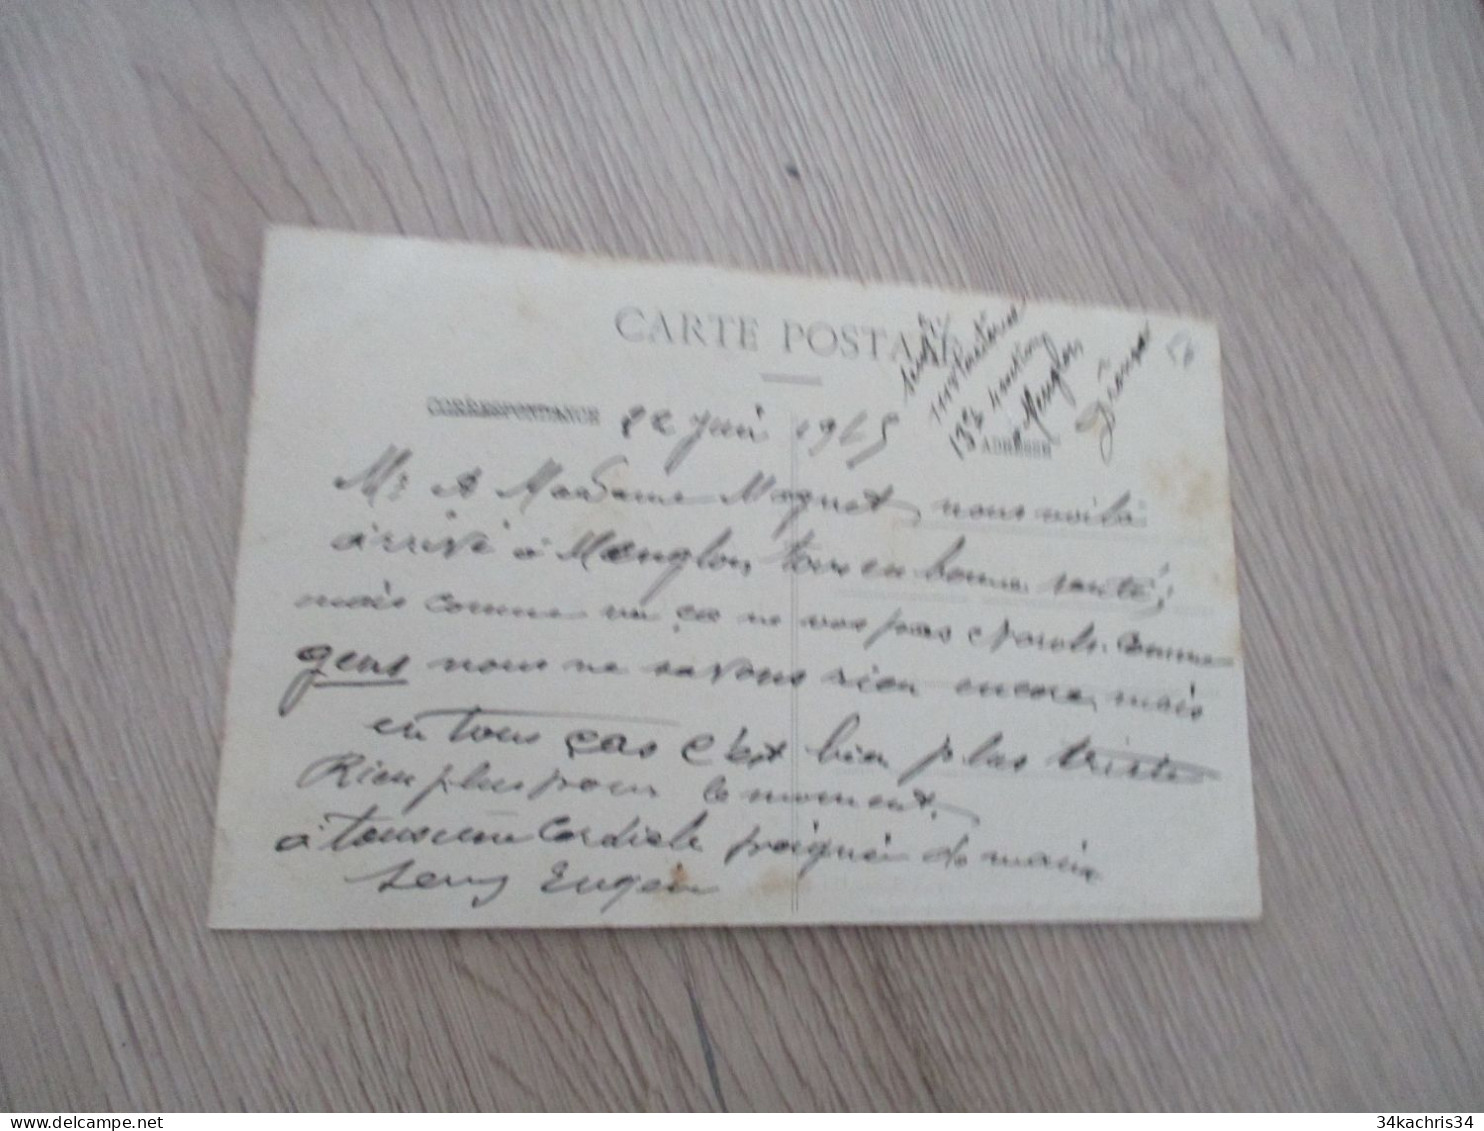 CARTE POSTALE
CORRESPONDANCE
ADRESSE
22 Juin 1915
134 Section
Menglon
Drôme
Mr & Madame Moquet, nous voilà
arrivé à Menglon, tous en bonne santé,
mais comme vu ça ne vos pas comme
gens nous ne savons rien encore, mais
en tous cas c'est bien plus triste
Rien plus pour le moment.
à tous une Cordiale poignée de main
Eugène
34kachris34